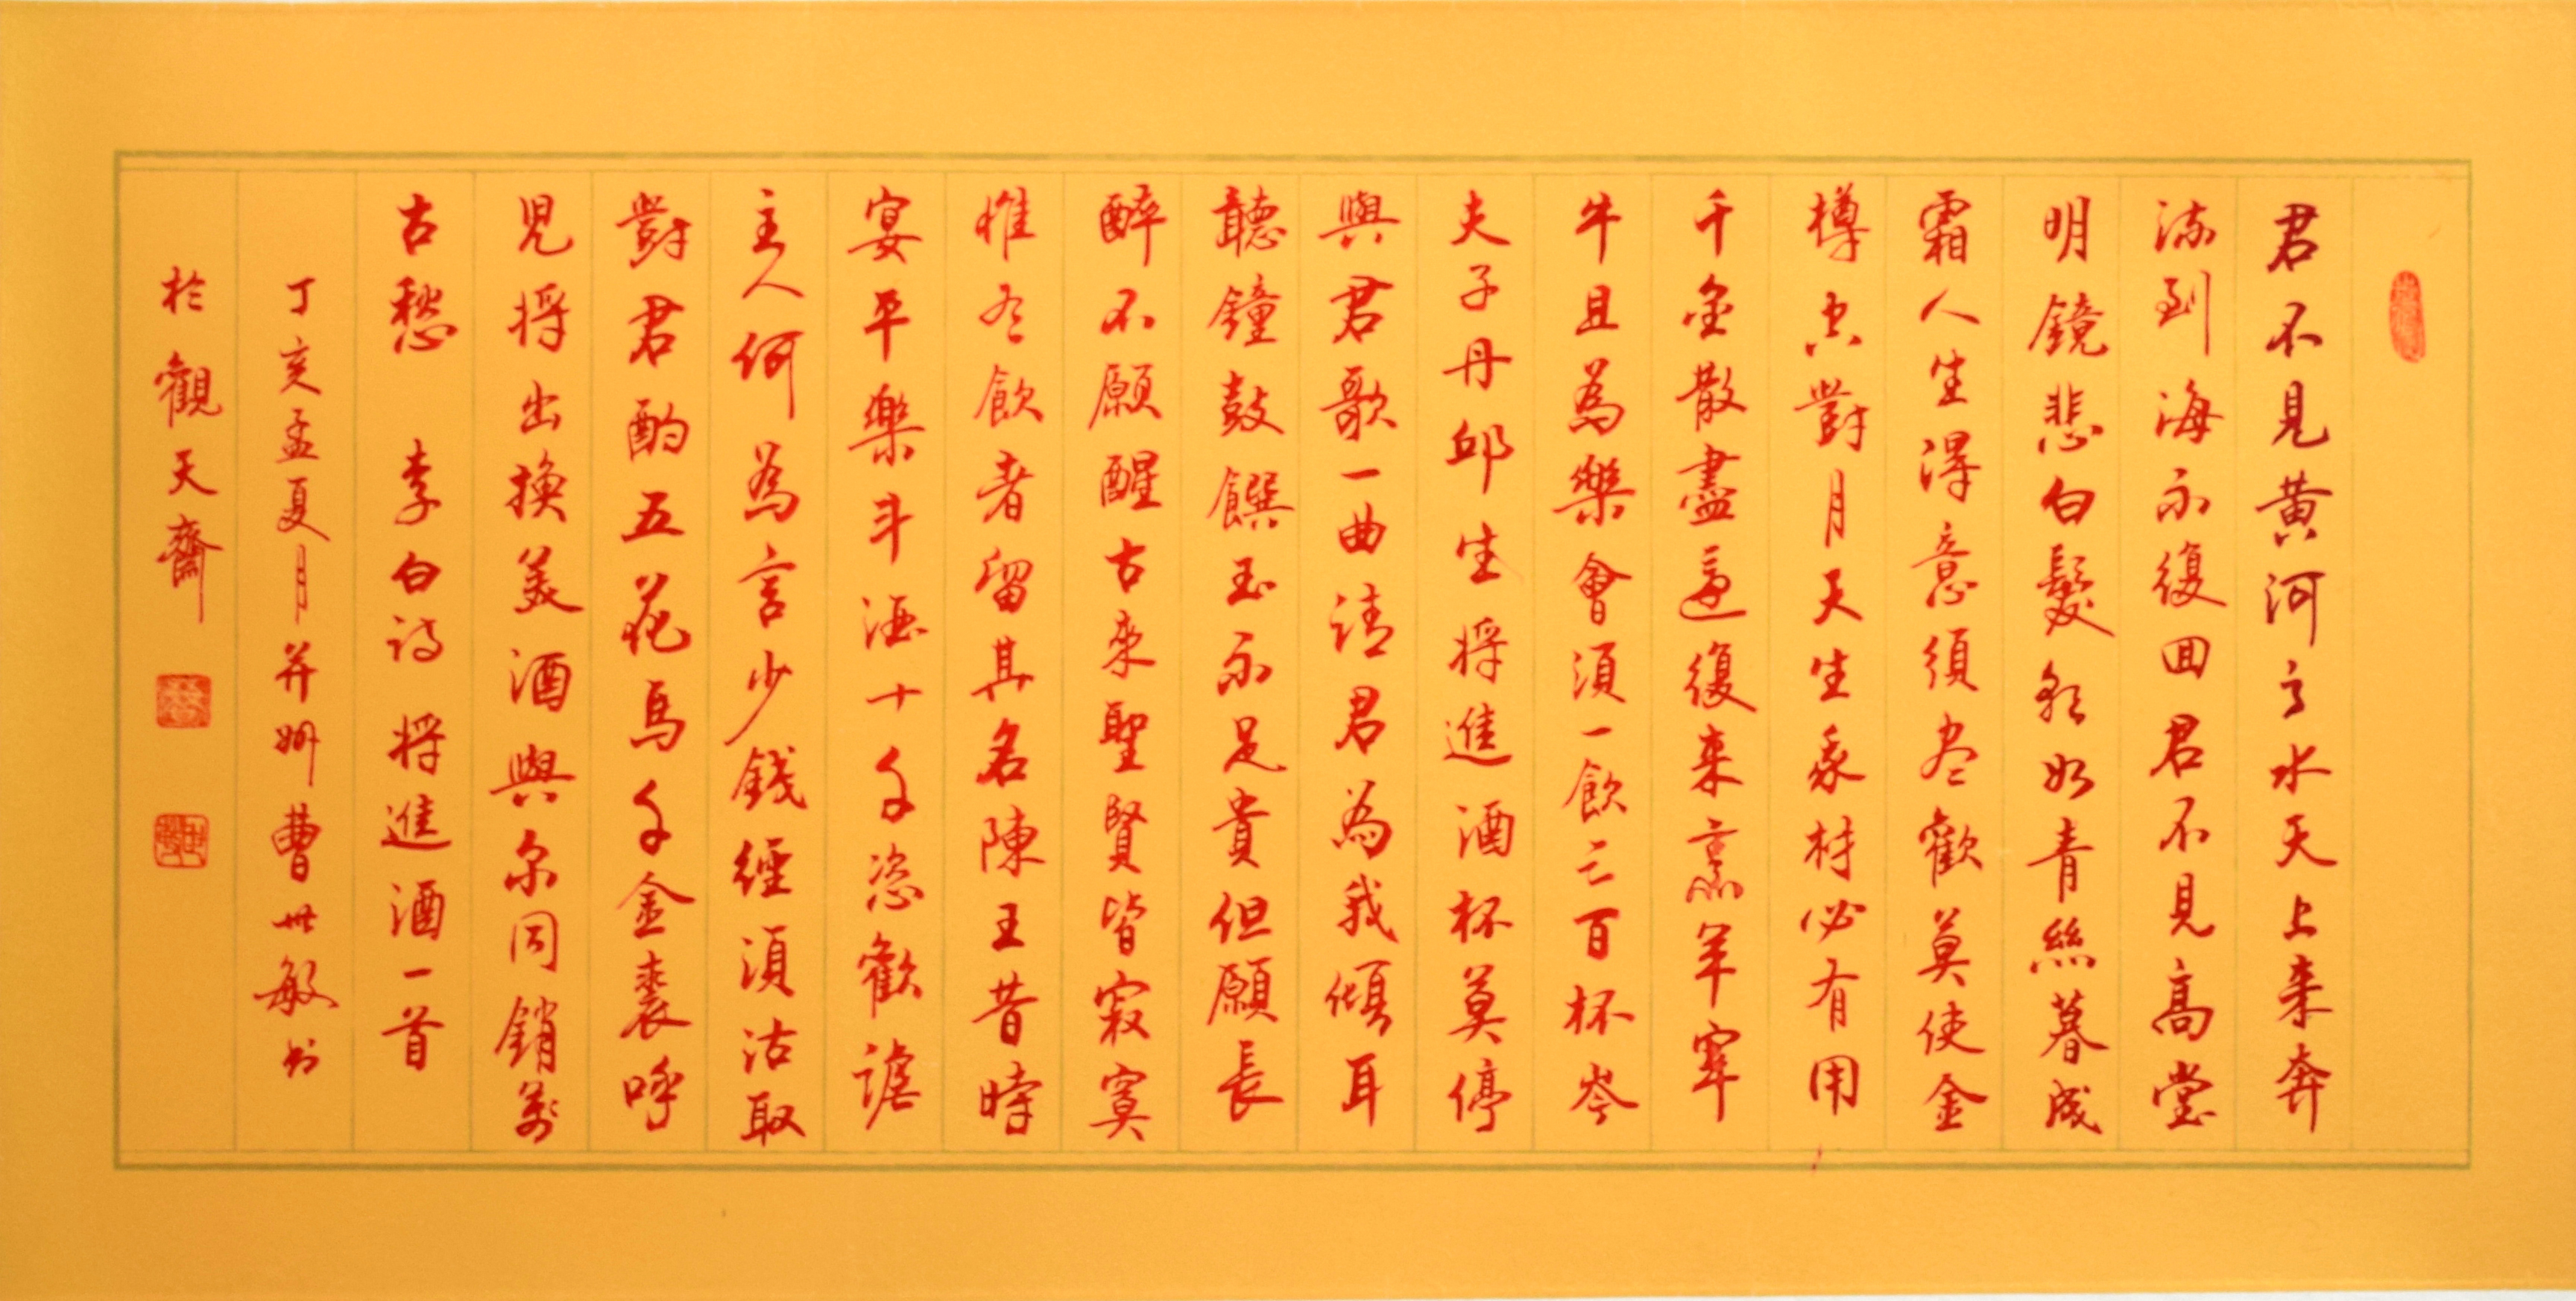 君不見黃河之水天上来奔
流到海不復回君不見高堂
明鏡悲白髮朝如青絲暮成
霜人生得意須尽歡莫使金
樽空對月天生我材必有用
千金散盡還復来烹羊宰
牛且為樂會須一飲三百杯岑
夫子丹邱生将進酒杯莫停
與君歌一曲請君為我傾耳
聽鐘鼓饌玉不足貴但願長
醉不願醒古來聖賢皆寂寞
惟有飲者留其名陳王昔時
宴平樂斗酒十千恣歡謔
主人何為言少錢經須沽取
對君酌五花馬千金裘呼
児将出換美酒與尔同銷萬
古愁 李白詩 将進酒一首
丁亥孟夏月并州曹世敏书
於觀天齋